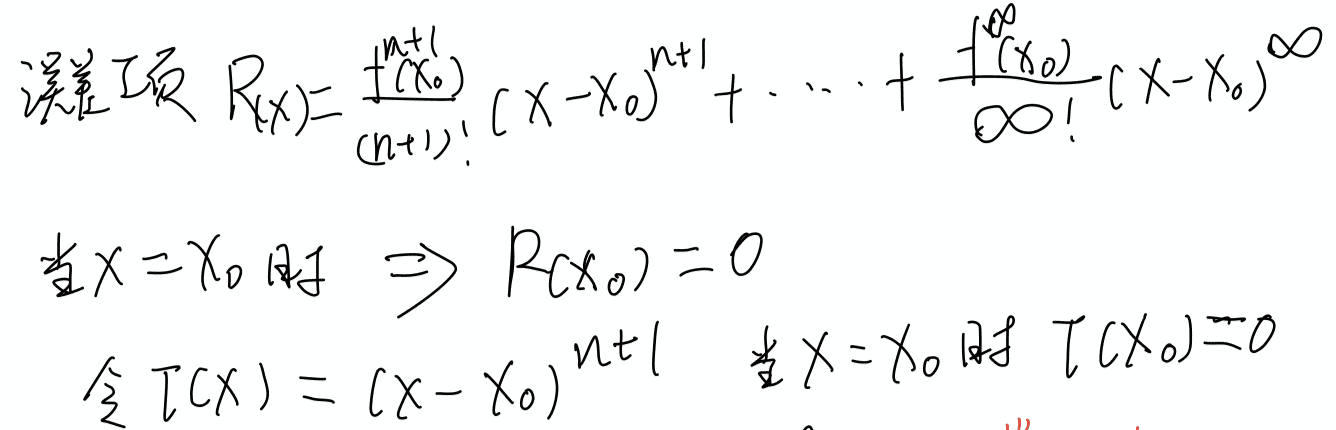 误差项 R(x)= f^{n+1}(x₀)/(n+1)! (x-x₀)^{n+1} + ····· + f^∞(x₀)/∞! (x-x₀)^∞
当x=x₀时 ⇒ R(x₀)=0
令T(x)=(x-x₀)^{n+1} 当x=x₀时 T(x₀)=0